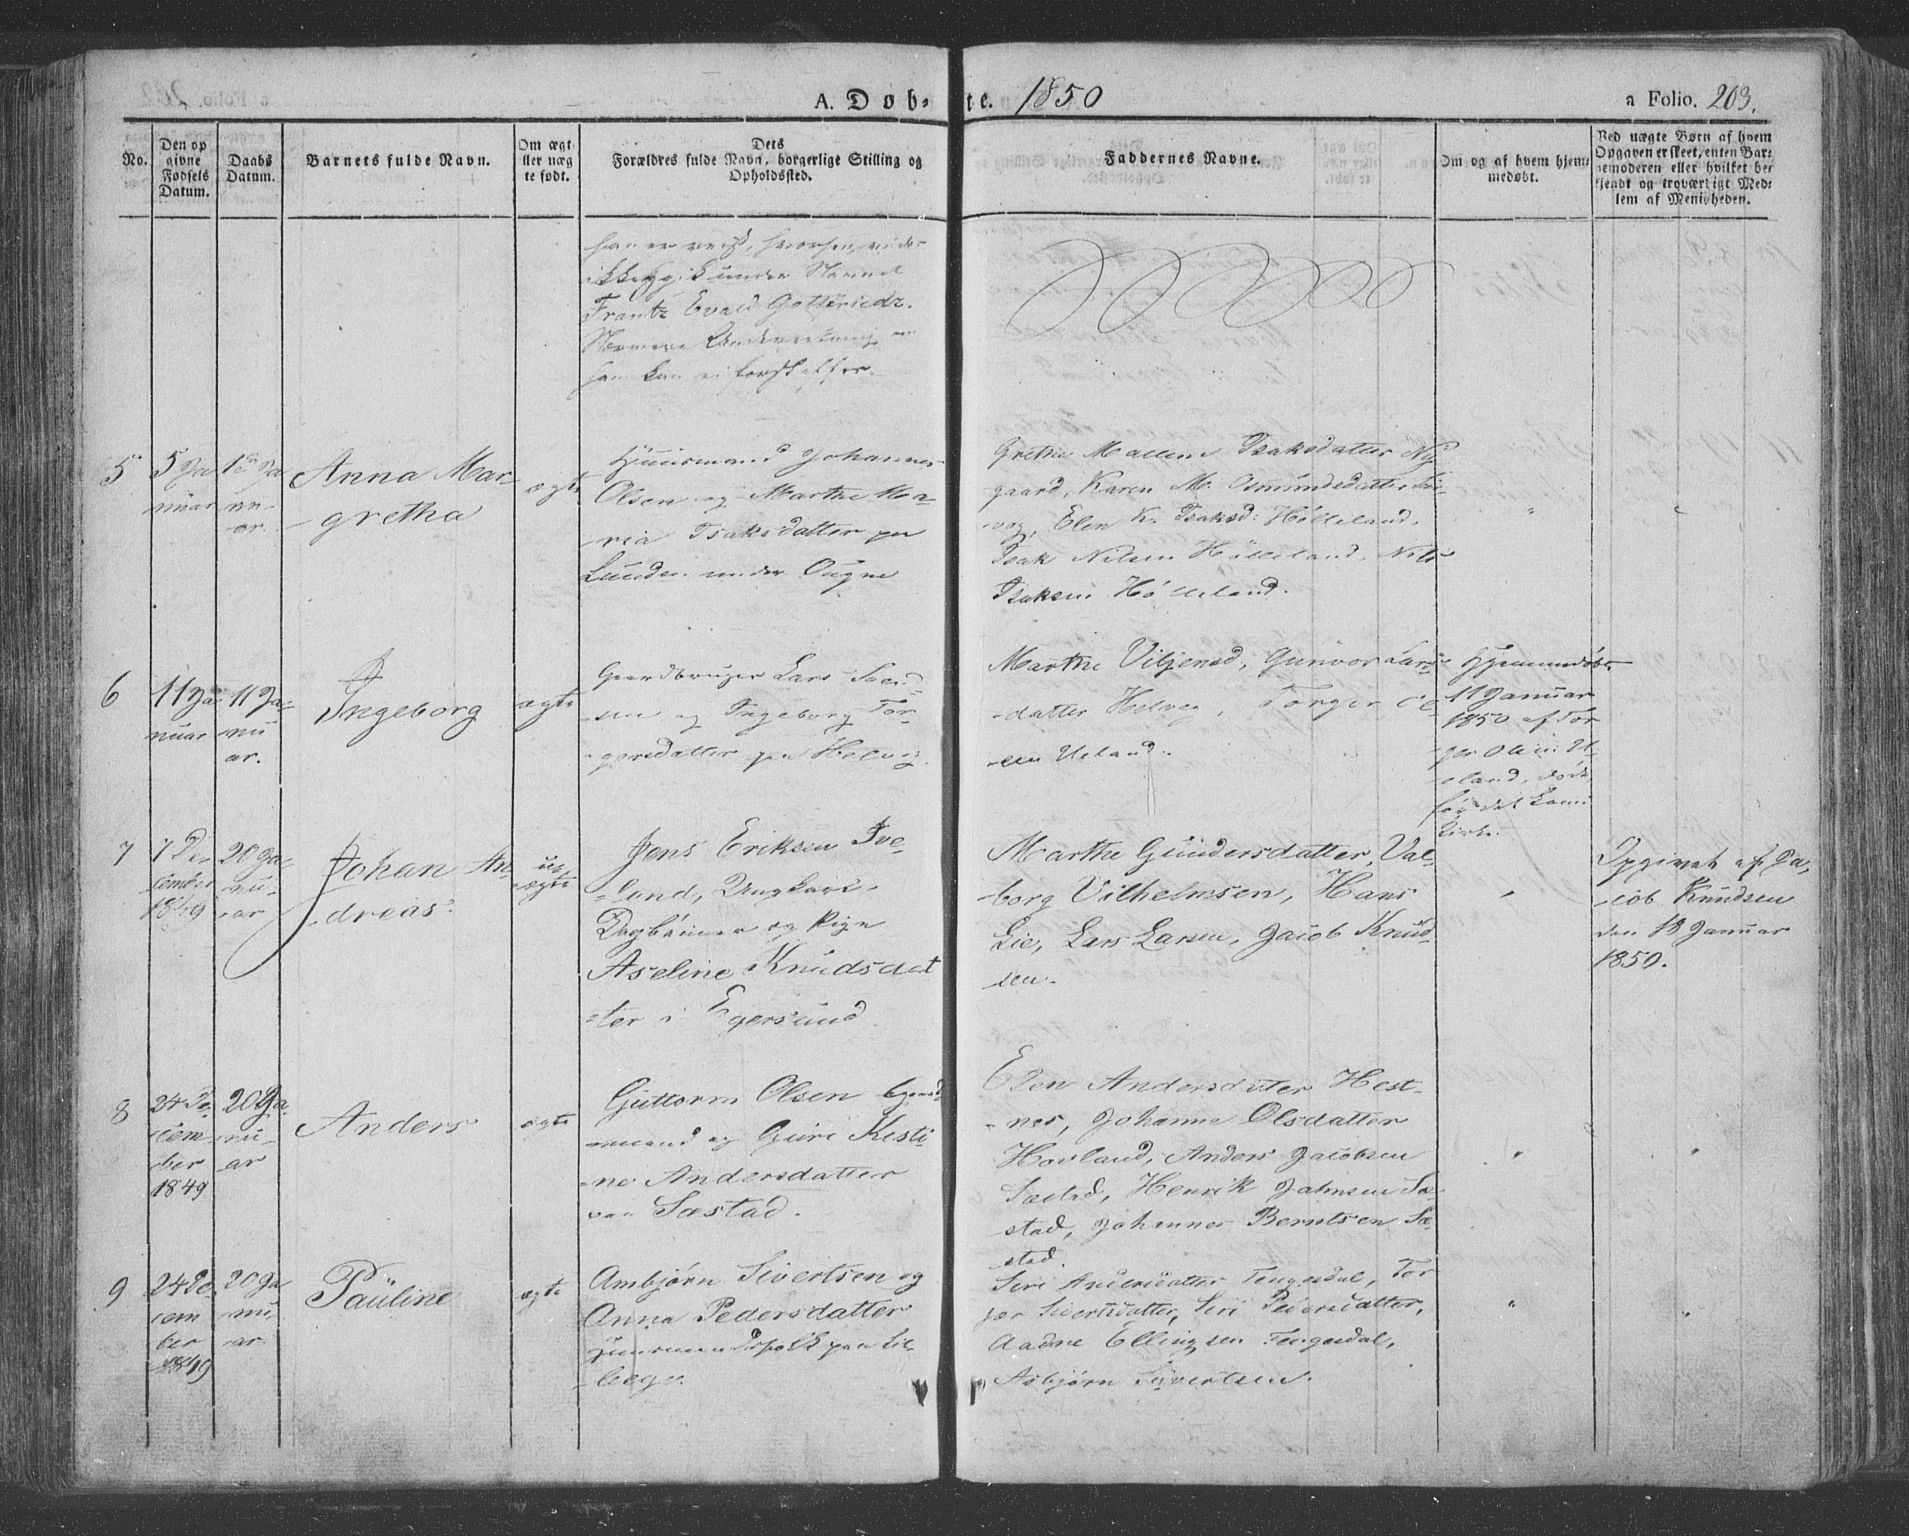 A. Døb- te. 1850 a Folio. 203.
No.
Den op
givne
Fødsels
Datum.
Daabs
Datum.
Barnets fulde Navn.
Om ægt
eller uæg
te født.
Dets
Forældres fulde Navn, borgerlige Stilling og
Opholdssted.
Faddernes Navne.
Om og af hvem hjem-
medøbt.
Ved uægte Børn af hvem
Opgaven er skeet, enten Bar-
nemoderen eller hvilket be-
kjendt og troværdigt Med-
lem af Menigheden.
han er reist,
under Navnet
Frantz Evald Gottfriedt.
Nærmere Underretning
han kan ei forskaffes.
5
5 Ja
nuar
Ja
nu-
ar.
Anna Mar-
gretha
ægte
Huusmand Johannes
Olsen og Marthe Ma-
ria Isaksdatter paa
Lunden under Ougne
Grethe Mallene Isaksdatter Ny
gaard, Karen M. Osmundsdatter
Elen K. Isaksd: Hölleland,
Isak Nilsen Hölleland, Nils
Isaksen Hölleland.
6
11 Ja
nuar
11 Ja-
nu
ar.
Ingeborg
ægte
Gaardbruger Lars Svend
sen og Ingeborg Tor-
gersdatter paa Helvig.
Marthe Viljensd, Gunvor Lars
datter Helveg, Torger Ol-
sen Ueland.
Hjemmedøbt
11 Januar
1850 af Tor
ger Olsen U-
eland, døde
før det kom i
Kirke.
7
7 De-
cember
1849
20 Ja-
nu-
ar
Johan An-
dreas.
u-
ægte
Jens Eriksen Ive-
land, Ungkarl,
og Pige
Aseline Knudsdat
ter i Egersund
Marthe Gundersdatter, Val-
borg Vilhelmsen, Hans
Lie, Lars Larsen, Jacob Knud-
sen.
"
Opgivet af Ja-
cob Knudsen
den 18 Januar
1850.
8
24 De-
cem-
ber
1849
20 Ja
nu-
ar
Anders
ægte
Guttorm Olsen
mand og Guri Kisti-
ne Andersdatter
paa Sæstad.
Elen Andersdatter Hest-
nes, Johanne Olsdatter
Hovland, Anders Jacobsen
Sæstad, Henrik Johnsen Sæ-
stad, Johannes Berntsen Sæ-
stad.
"
"
9
24 De-
cem
ber
1849
20 Ja
nu-
ar
Pauline
ægte
Ambjørn Sivertsen og
Anna Pedersdatter
Huusmandsfolk paa Lit-
lebege
Siri Andersdatter Tengesdal, Tor
jer Sivertsdatter, Siri Pedersdatter,
Aadne Ellingsen Tengesdal,
Asbjørn Sivertsen.
"
"